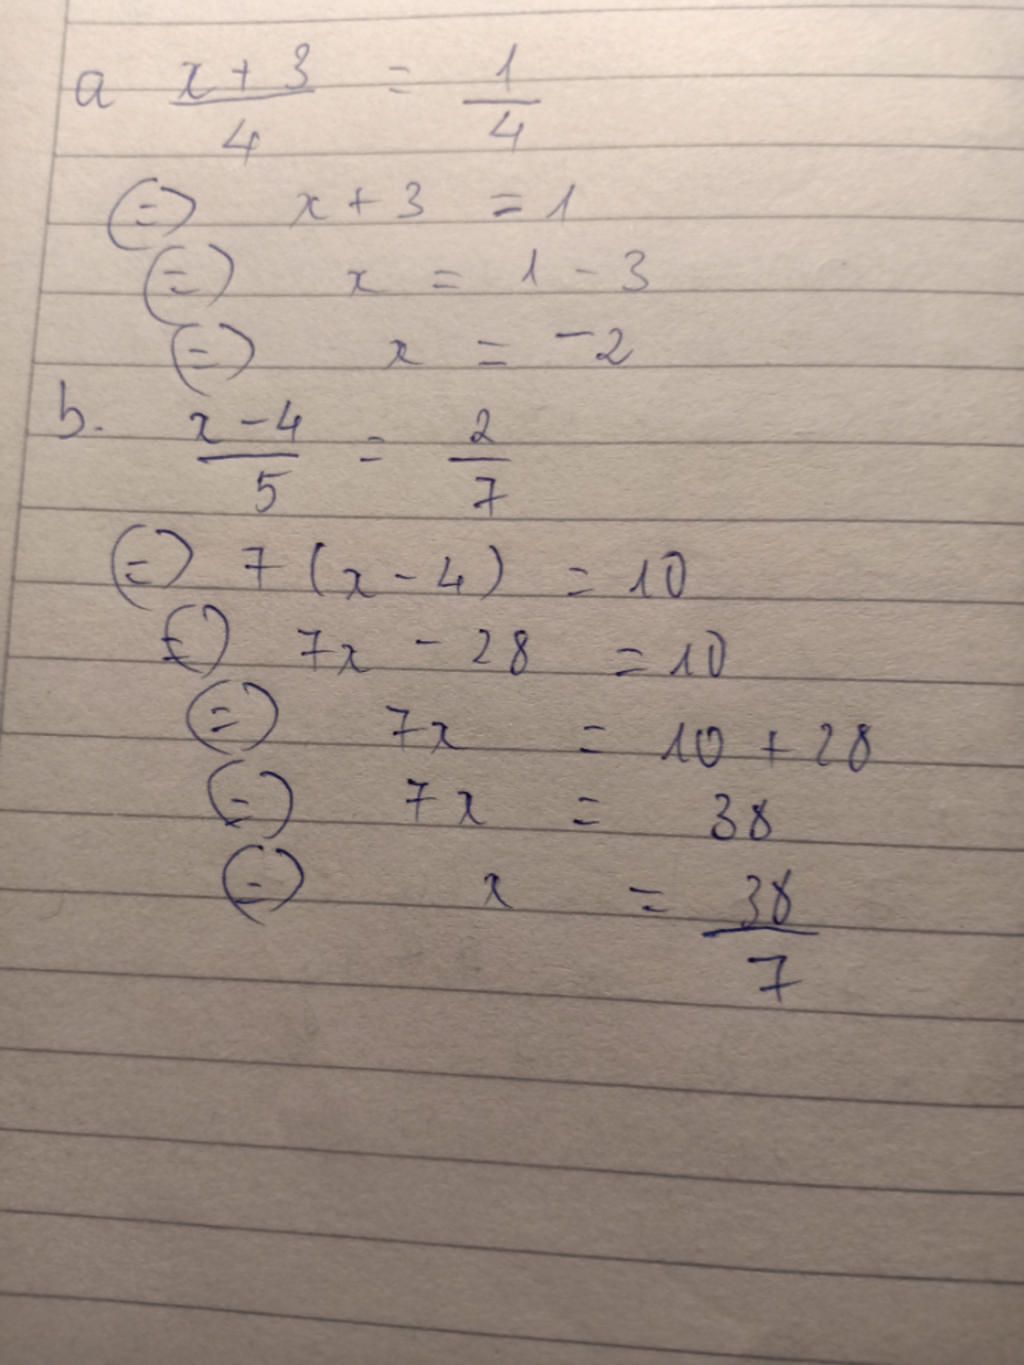 a x + 3 / 4 = 1 / 4
(=) x + 3 = 1
(=) x = 1 - 3
(=) x = -2
b. x - 4 / 5 = 2 / 7
(=) 7 (x - 4) = 10
(=) 7x - 28 = 10
(=) 7x = 10 + 28
(=) 7x = 38
(=) x = 38 / 7